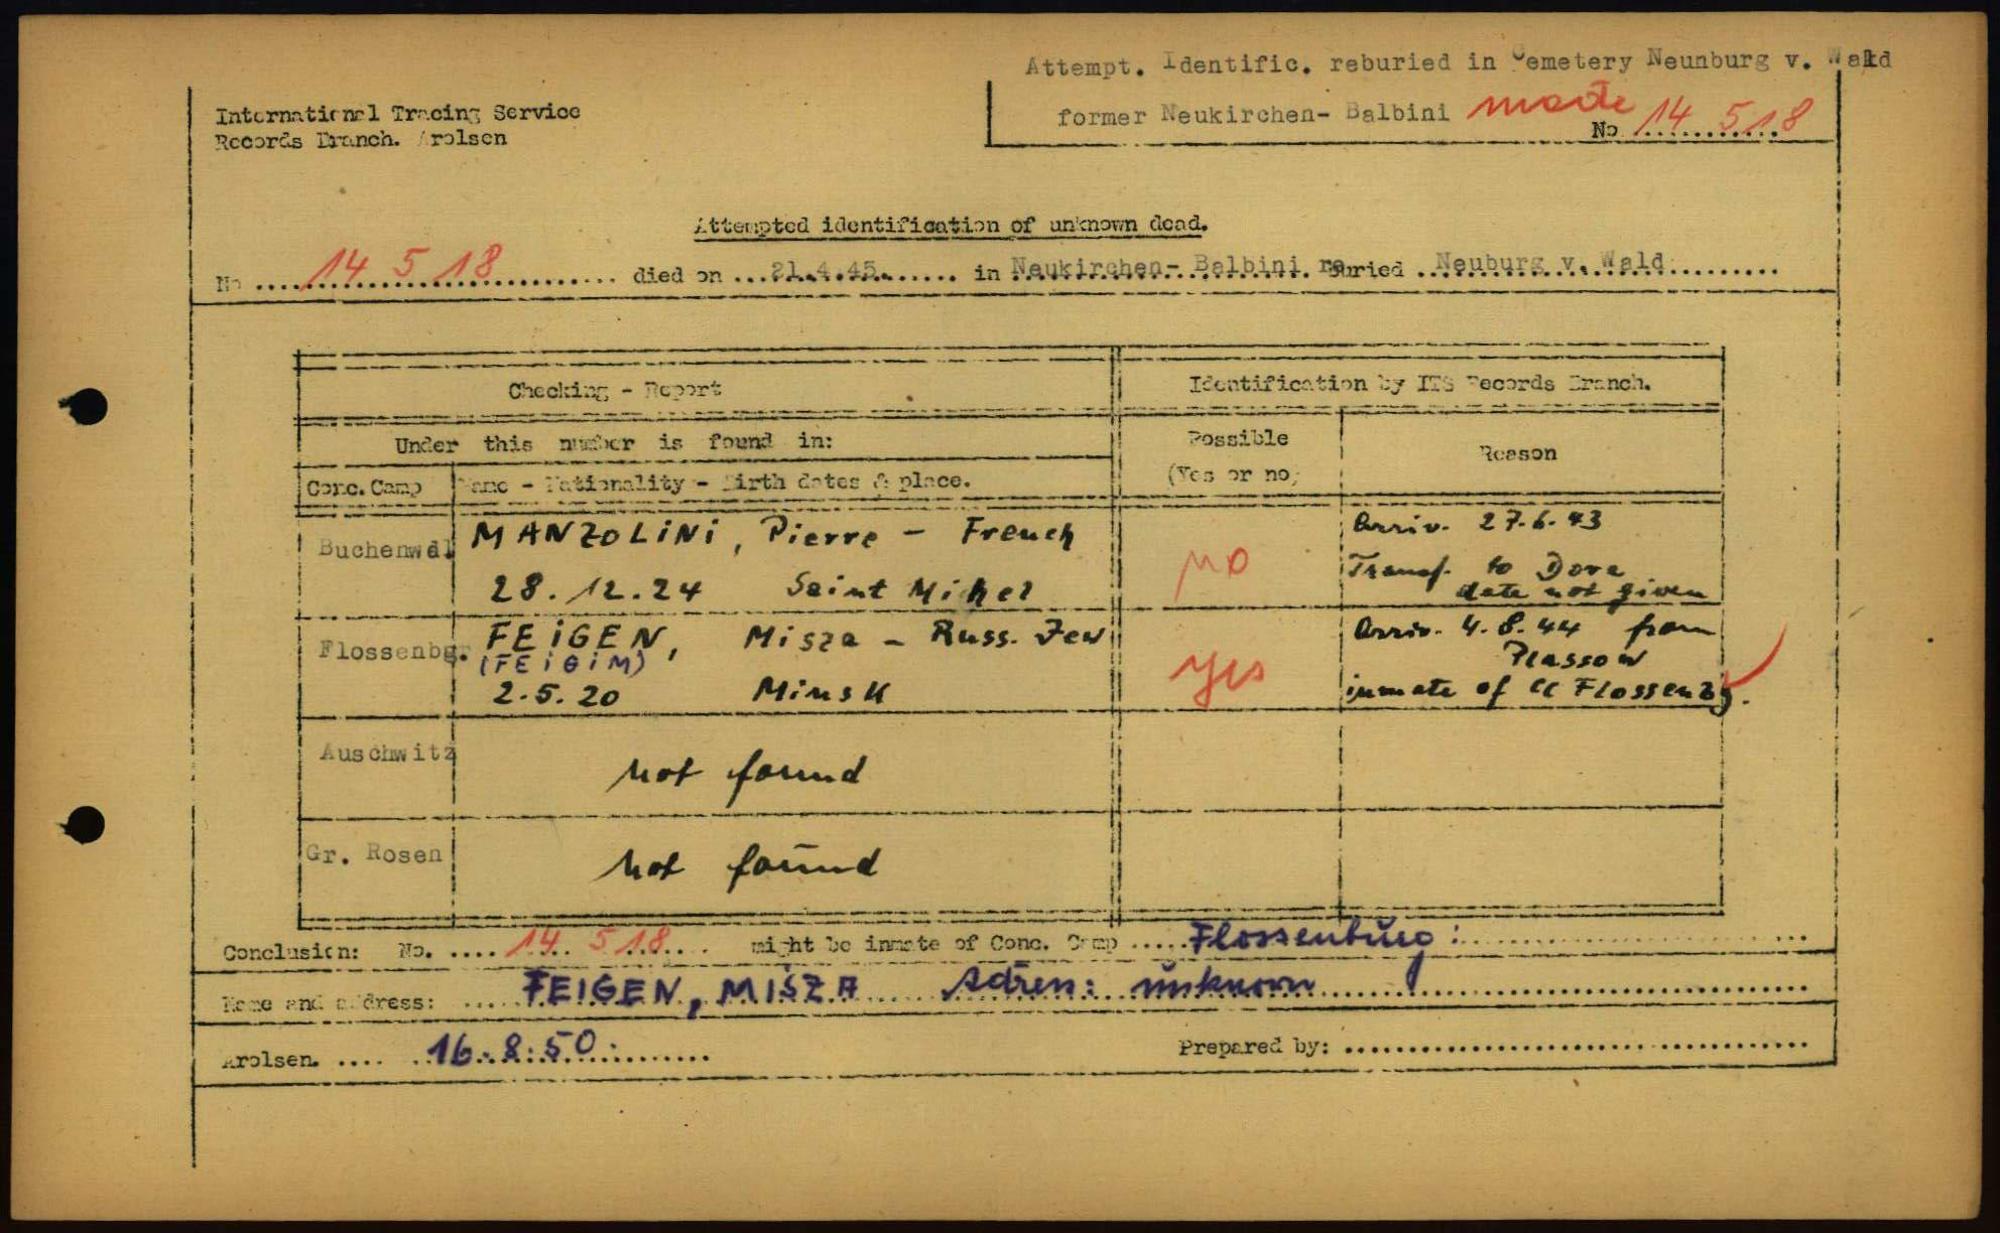 Attempt. Identific. reburied in Cemetery Neunburg v. Wald
former Neukirchen- Balbini
No 14 518
International Tracing Service
Records Branch. Arolsen
Attempted identification of unknown dead.
No 14 5 18 died on 21.4.45. in Neukirchen- Balbini. reburied Neuburg v. Wald
Checking - Report
Identification by ITS Records Branch.
Under this number is found in:
Possible
(Yes or no)
Reason
Conc. Camp
Name - Nationality - Birth dates & place.
Buchenwal
MANZOLINI, Pierre - French
28.12.24 Saint Mihel
no
Arriv. 27.6.43
Transf. to Dora
date not given
Flossenbgr.
FEIGEN, Misza - Russ. Jew
(FEIGIM)
2.5.20 Minsk
yes
Arriv. 4.8.44 from
Plassow
inmate of CC Flossenbg.
Auschwitz
not found
Gr. Rosen
not found
Conclusion: No. 14 518 might be inmate of Conc. Camp Flossenbürg:
Name and address: FEIGEN, MISZA Adress: unknown
Arolsen. 16.8.50.
Prepared by: